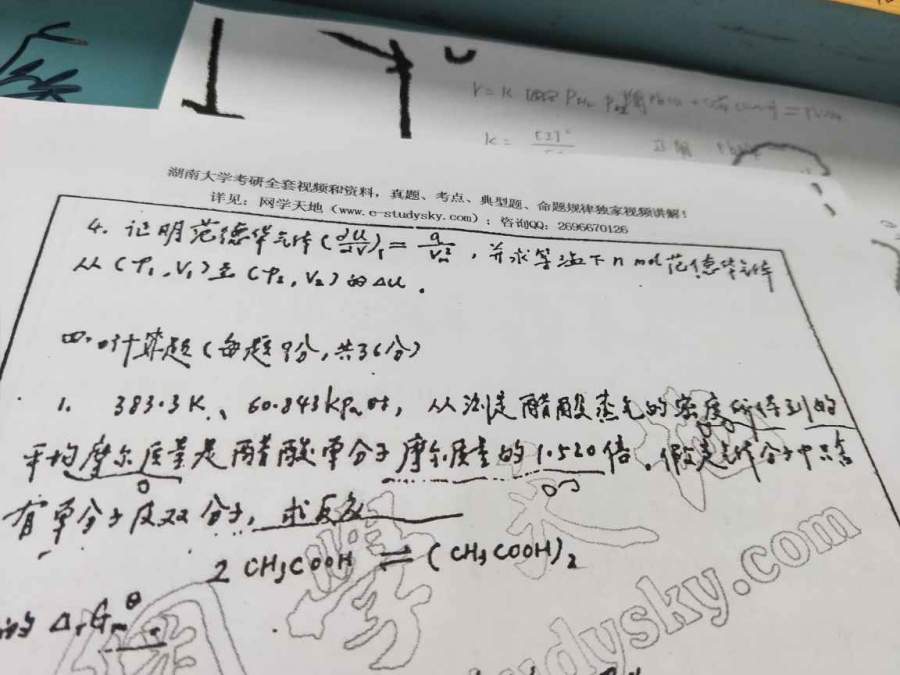 r = k
k =
湖南大学考研全套视频和资料，真题、考点、典型题、命题规律独家视频讲解！
详见：网学天地（www.e-studysky.com）；咨询QQ：2696670126
4. 证明范德华气体(∂U/∂V)T = a/Vm²，并求等温下n mol范德华气体
从(P1, V1)至(P2, V2)的ΔU。
四、计算题(每题9分，共36分)
1. 383.3K、60.843kPa时，从测定醋酸蒸气的密度所得到的
平均摩尔质量是醋酸单分子摩尔质量的1.520倍。假定气体分子中只含
有单分子及双分子，求反应
2CH3COOH ⇌ (CH3COOH)2
的ΔrGm^θ。
studysky.com